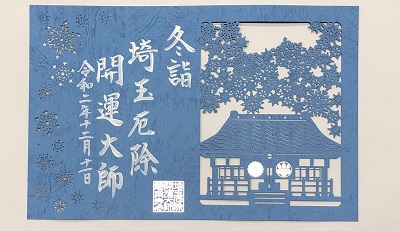 冬詣
埼玉厄除
開運大師
令和二年十二月十二日